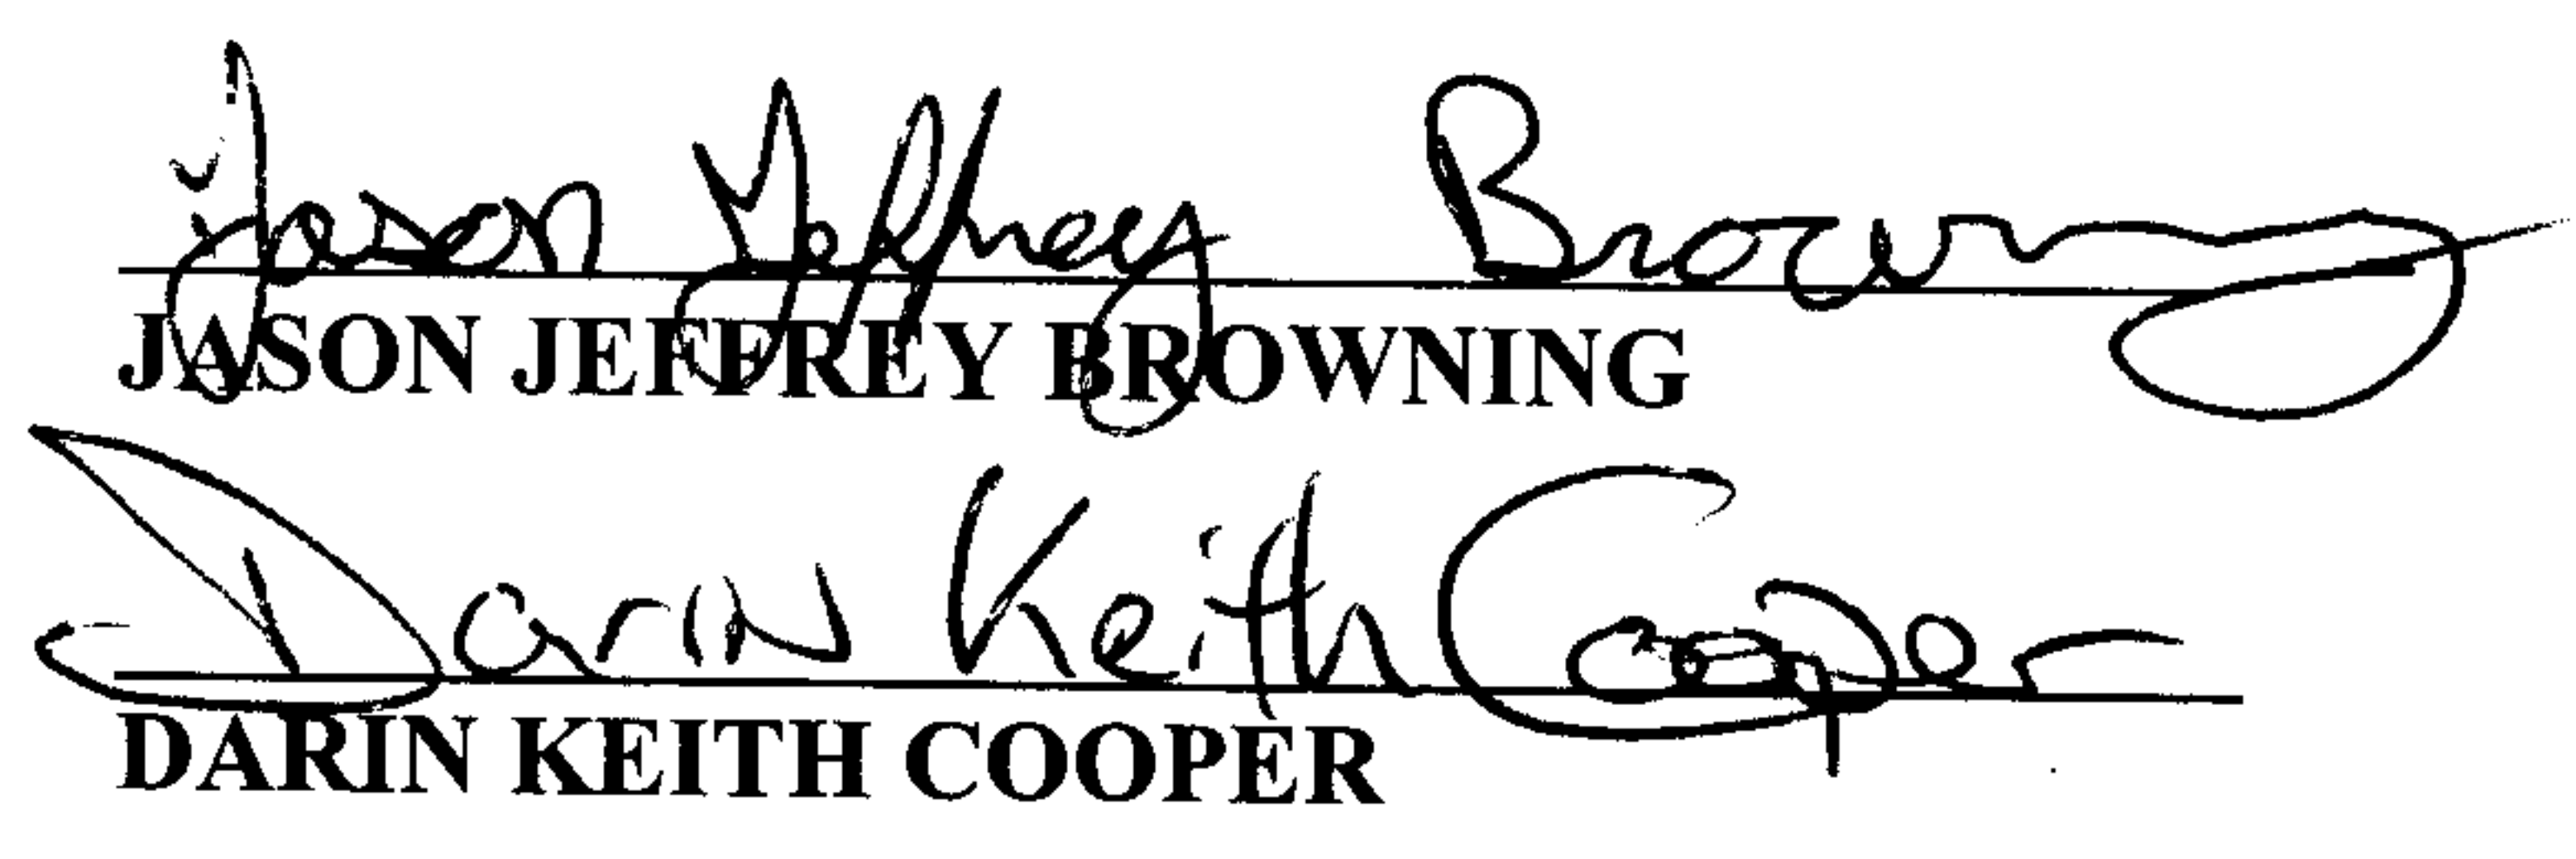 Jason Jeffrey Browning
JASON JEFFREY BROWNING
Darin Keith Cooper
DARIN KEITH COOPER